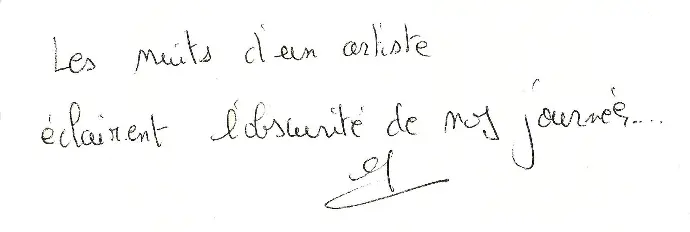 Les nuits d'un artiste
éclairent l'obscurité de nos journées....